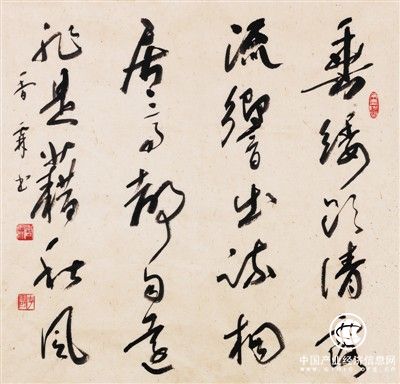 垂緌饮清露
流響出疏桐
居高聲自遠
非是藉秋風
香書
中国产业经济信息网
www.cinic.org.cn